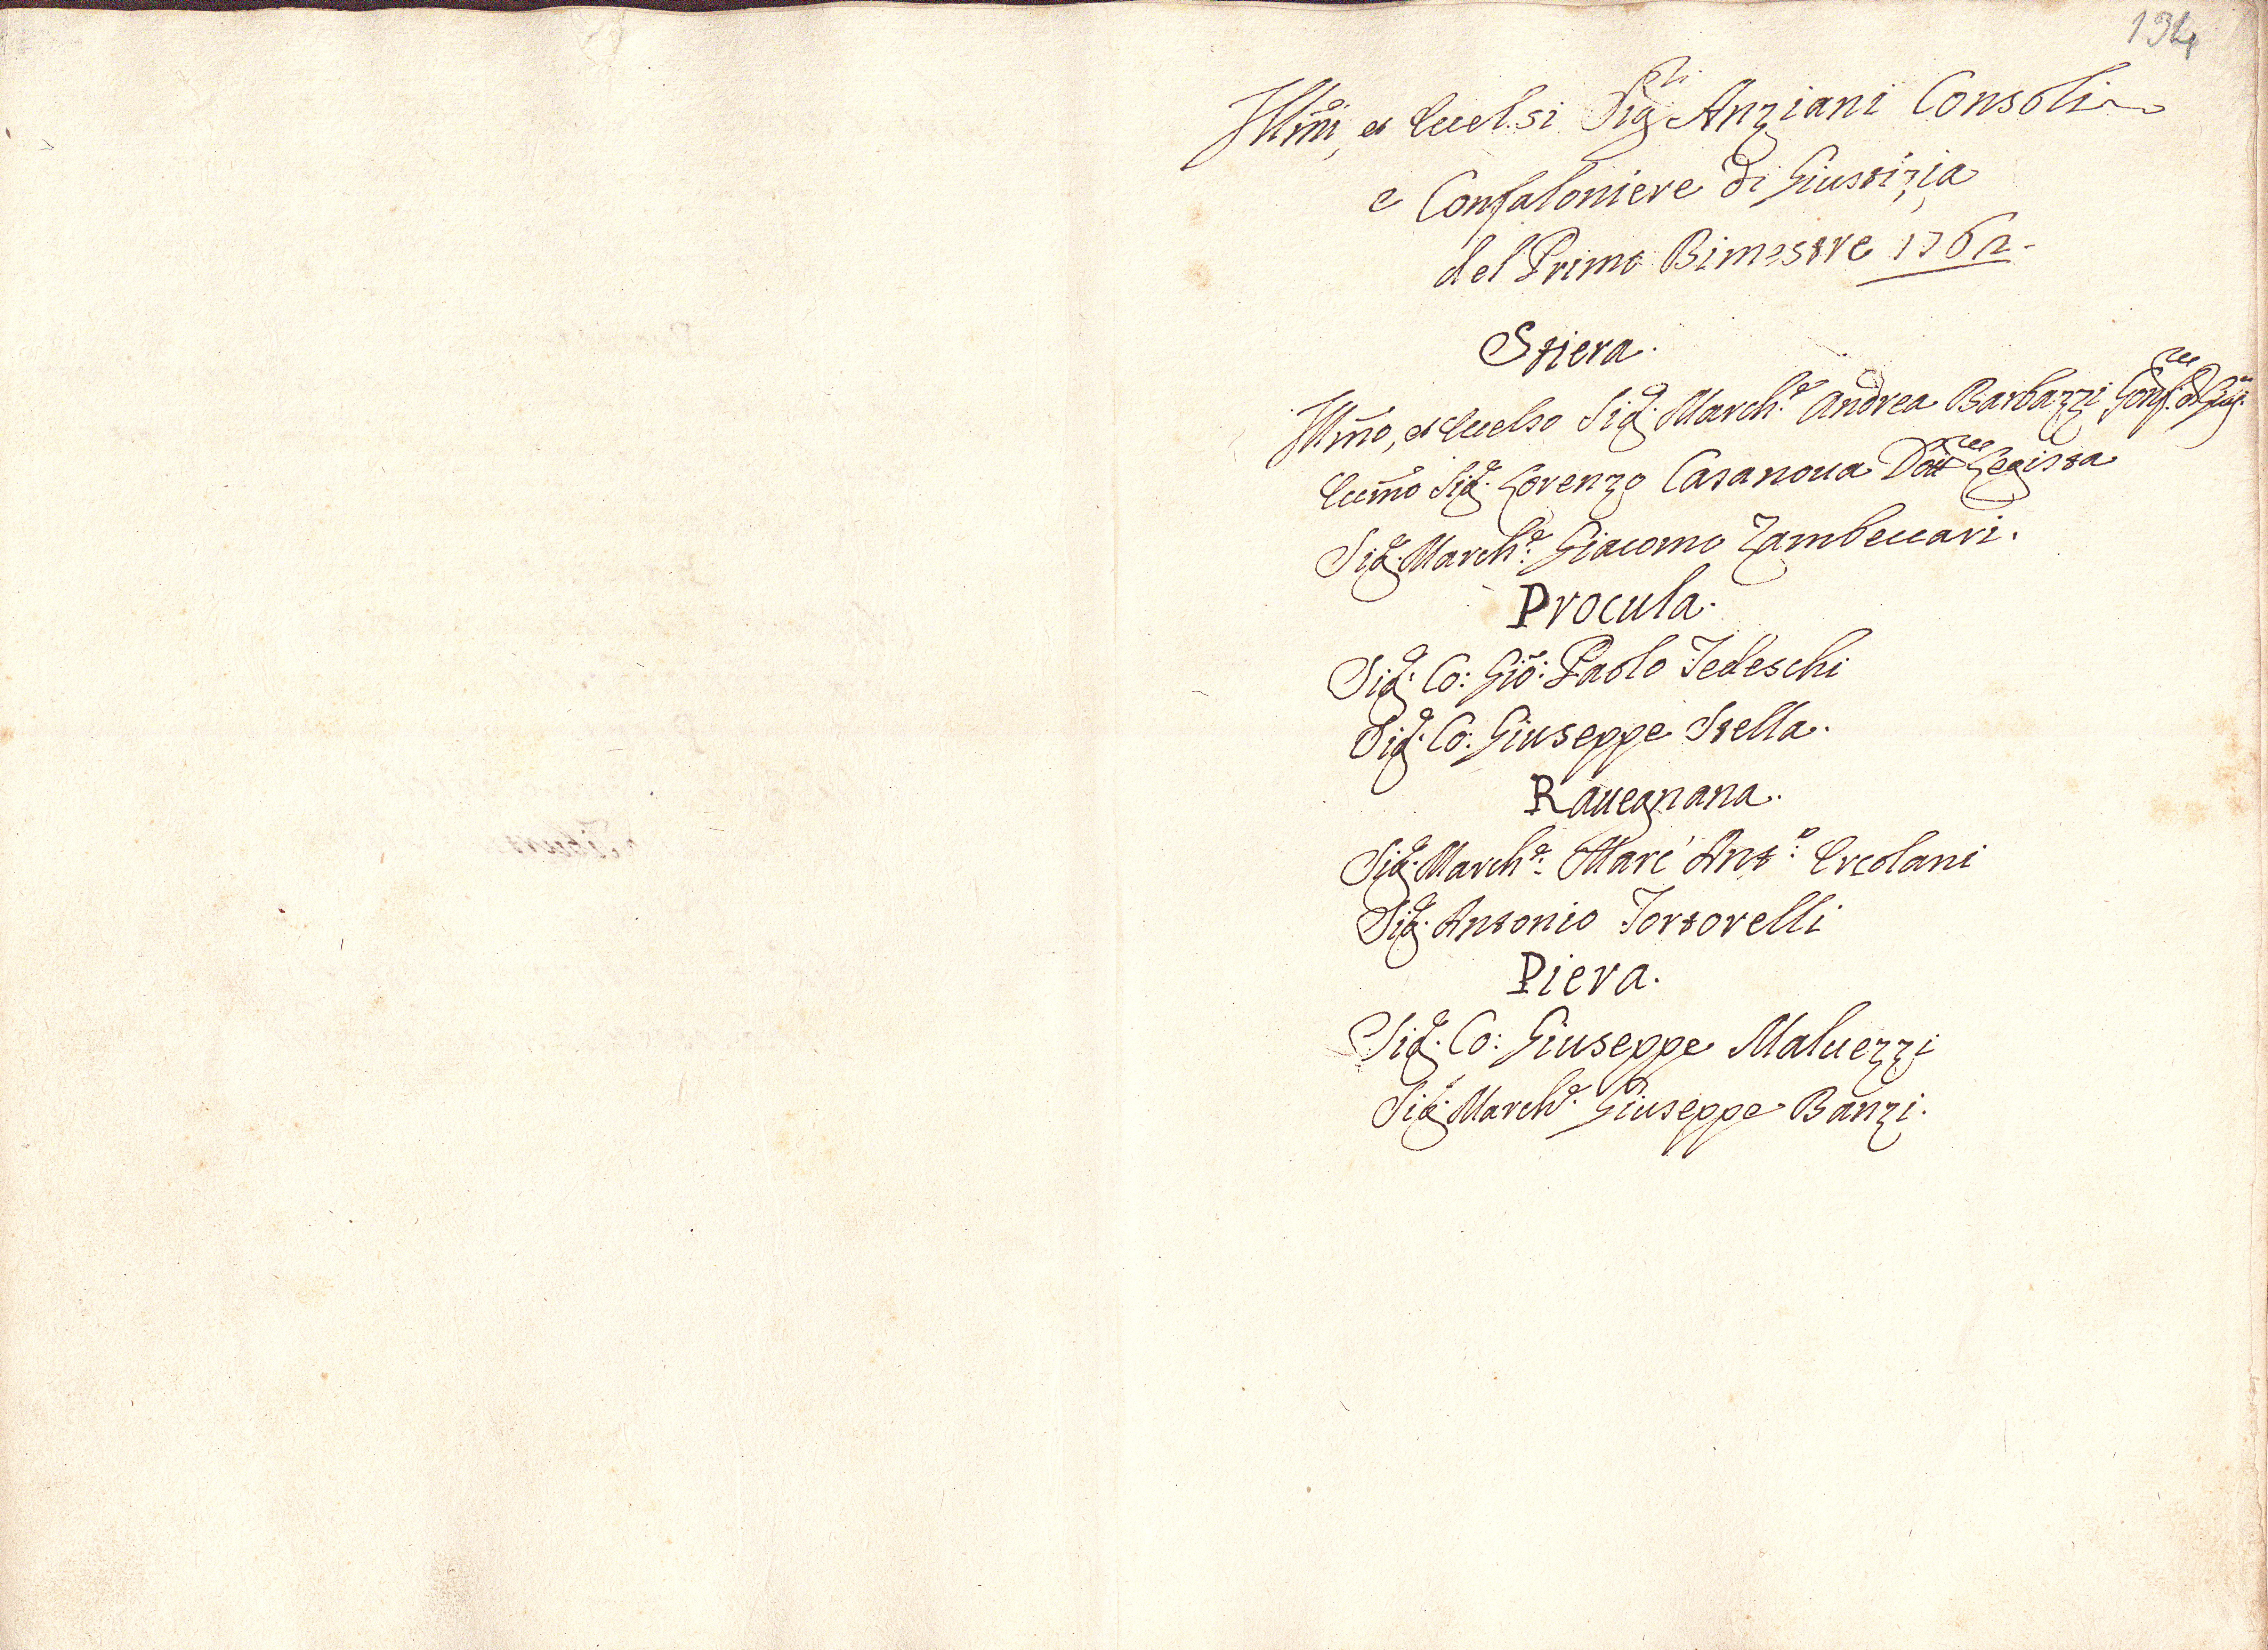 134
Illmi, et Eccelsi Sigri Anziani Consoli
e Confaloniere di Giustizia
del Primo Bimestre 1762.
Stiera.
Illmo, et Eccelso Sigr. Marche. Andrea Barbazzi Gonfre. di Giuzia.
Eccmo Sigr. Lorenzo Casanoua Dottre Legista
Sigr. Marche: Giacomo Zambeccari.
Procula.
Sigr. Co: Gio: Paolo Tedeschi
Sigr. Co: Giuseppe Stella.
Rauegnana.
Sigr. Marche: Marc' Anto: Ercolani
Sigr. Antonio Tortorelli
Piera.
Sigr. Co: Giuseppe Maluezzi
Sigr. Marche. Giuseppe Banzi.